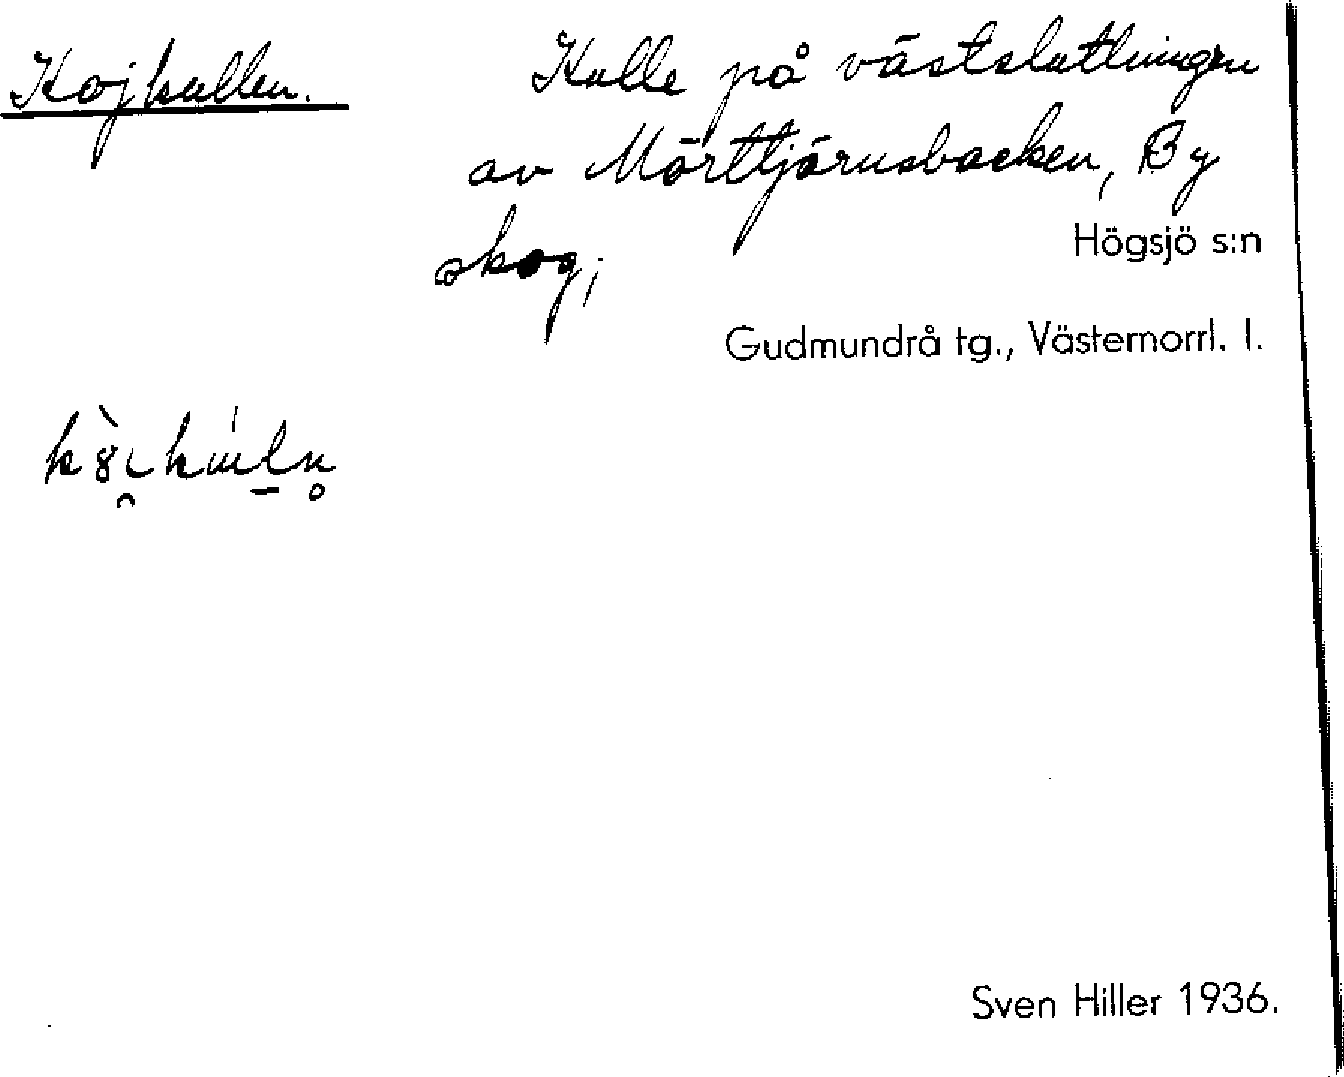 Kojkullen.
Kulle på västslutlningen
av Mörttjärnsbacken, By
skog;
Högsjö s:n
Gudmundrå tg., Västernorrl. l.
Sven Hiller 1936.